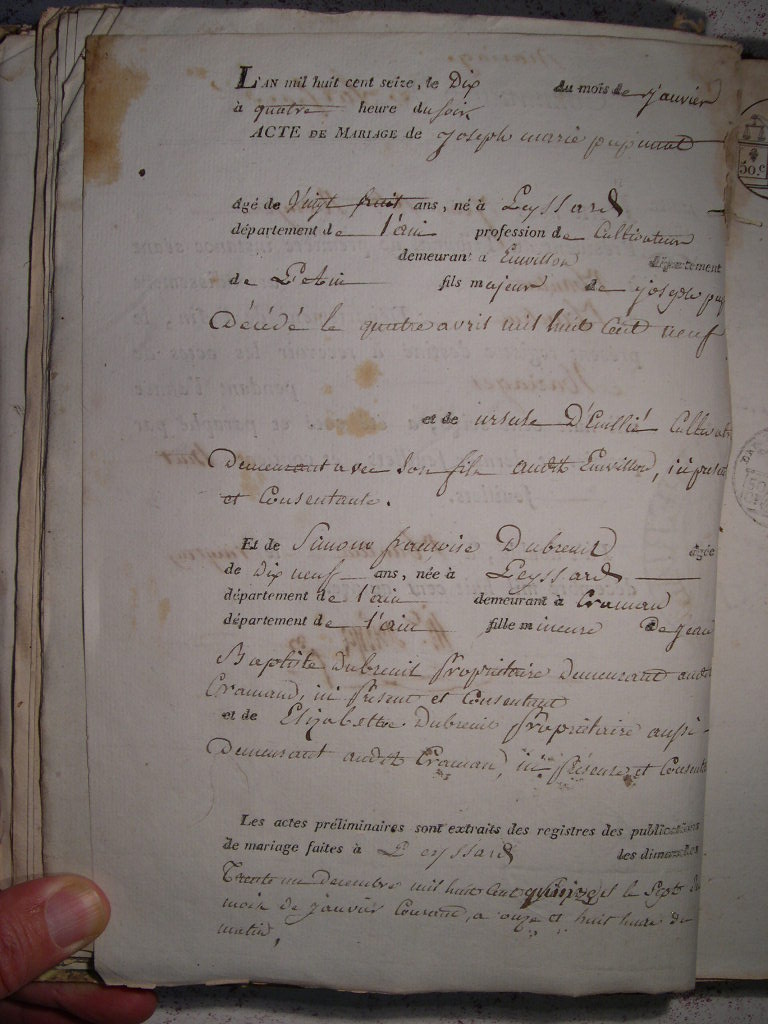 L'AN mil huit cent seize, le Dix du mois de janvier
à quatre heure du soir
ACTE DE MARIAGE de joseph marie
agé de Vingt huit ans, né à Leyssard
département de l'ain profession de Cultivateur
demeurant à Euvillon département
de L'ain fils majeur de joseph
Décédé le quatre avril mil huit Cent neuf
et de ursule D'Cullié
Demeurant avec Son fils audit Euvillon,
et Consentante.
Et de Simone francoise Dubreuil agée
de Dix neuf ans, née à Leyssard
département de l'ain demeurant à Craman
département de l'ain fille mineure De jean
Baptiste Dubreuil Propriétaire Demeurant audit
Cramand, ici Présent et Consentant
et de Elizabethe Dubreuil Propriétaire aussi
Demeurant audit Craman, ici Présente et
Les actes préliminaires sont extraits des registres des publications
de mariage faites à Leyssard les dimanches
Trente un Decembre mil huit Cent quinze et le Sept du
mois de janvier Courant, a onze et huit heure du
matin,
50.c